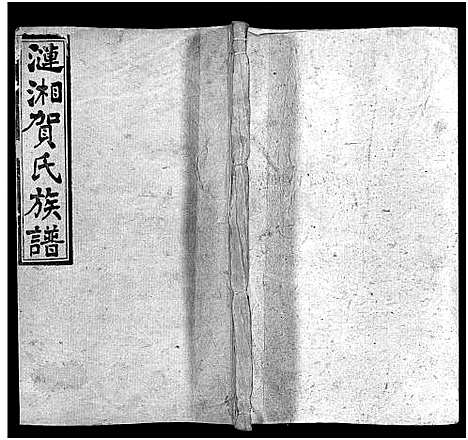 漣湘賀氏族譜